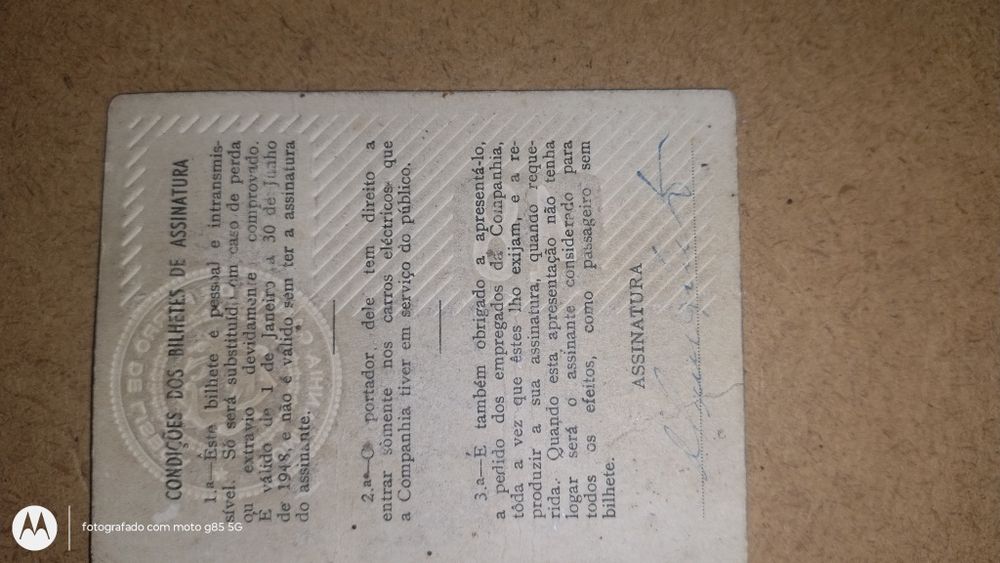 CONDIÇÕES DOS BILHETES DE ASSINATURA
1.a—Êste bilhete é pessoal e intransmis-
sível. Só será substituído em caso de perda
ou extravio devidamente comprovado.
É válido de 1 de Janeiro a 30 de Junho
de 1948, e não é válido sem ter a assinatura
do assinante.
2.a—O portador dele tem direito a
entrar sòmente nos carros eléctricos que
a Companhia tiver em serviço do público.
3.a—É também obrigado a apresentá-lo,
a pedido dos empregados da Companhia,
tôda a vez que êstes lho exijam, e a re-
produzir a sua assinatura, quando reque-
rida. Quando esta apresentação não tenha
logar será o assinante considerado para
todos os efeitos, como passageiro sem
bilhete.
ASSINATURA
fotografado com moto g85 5G